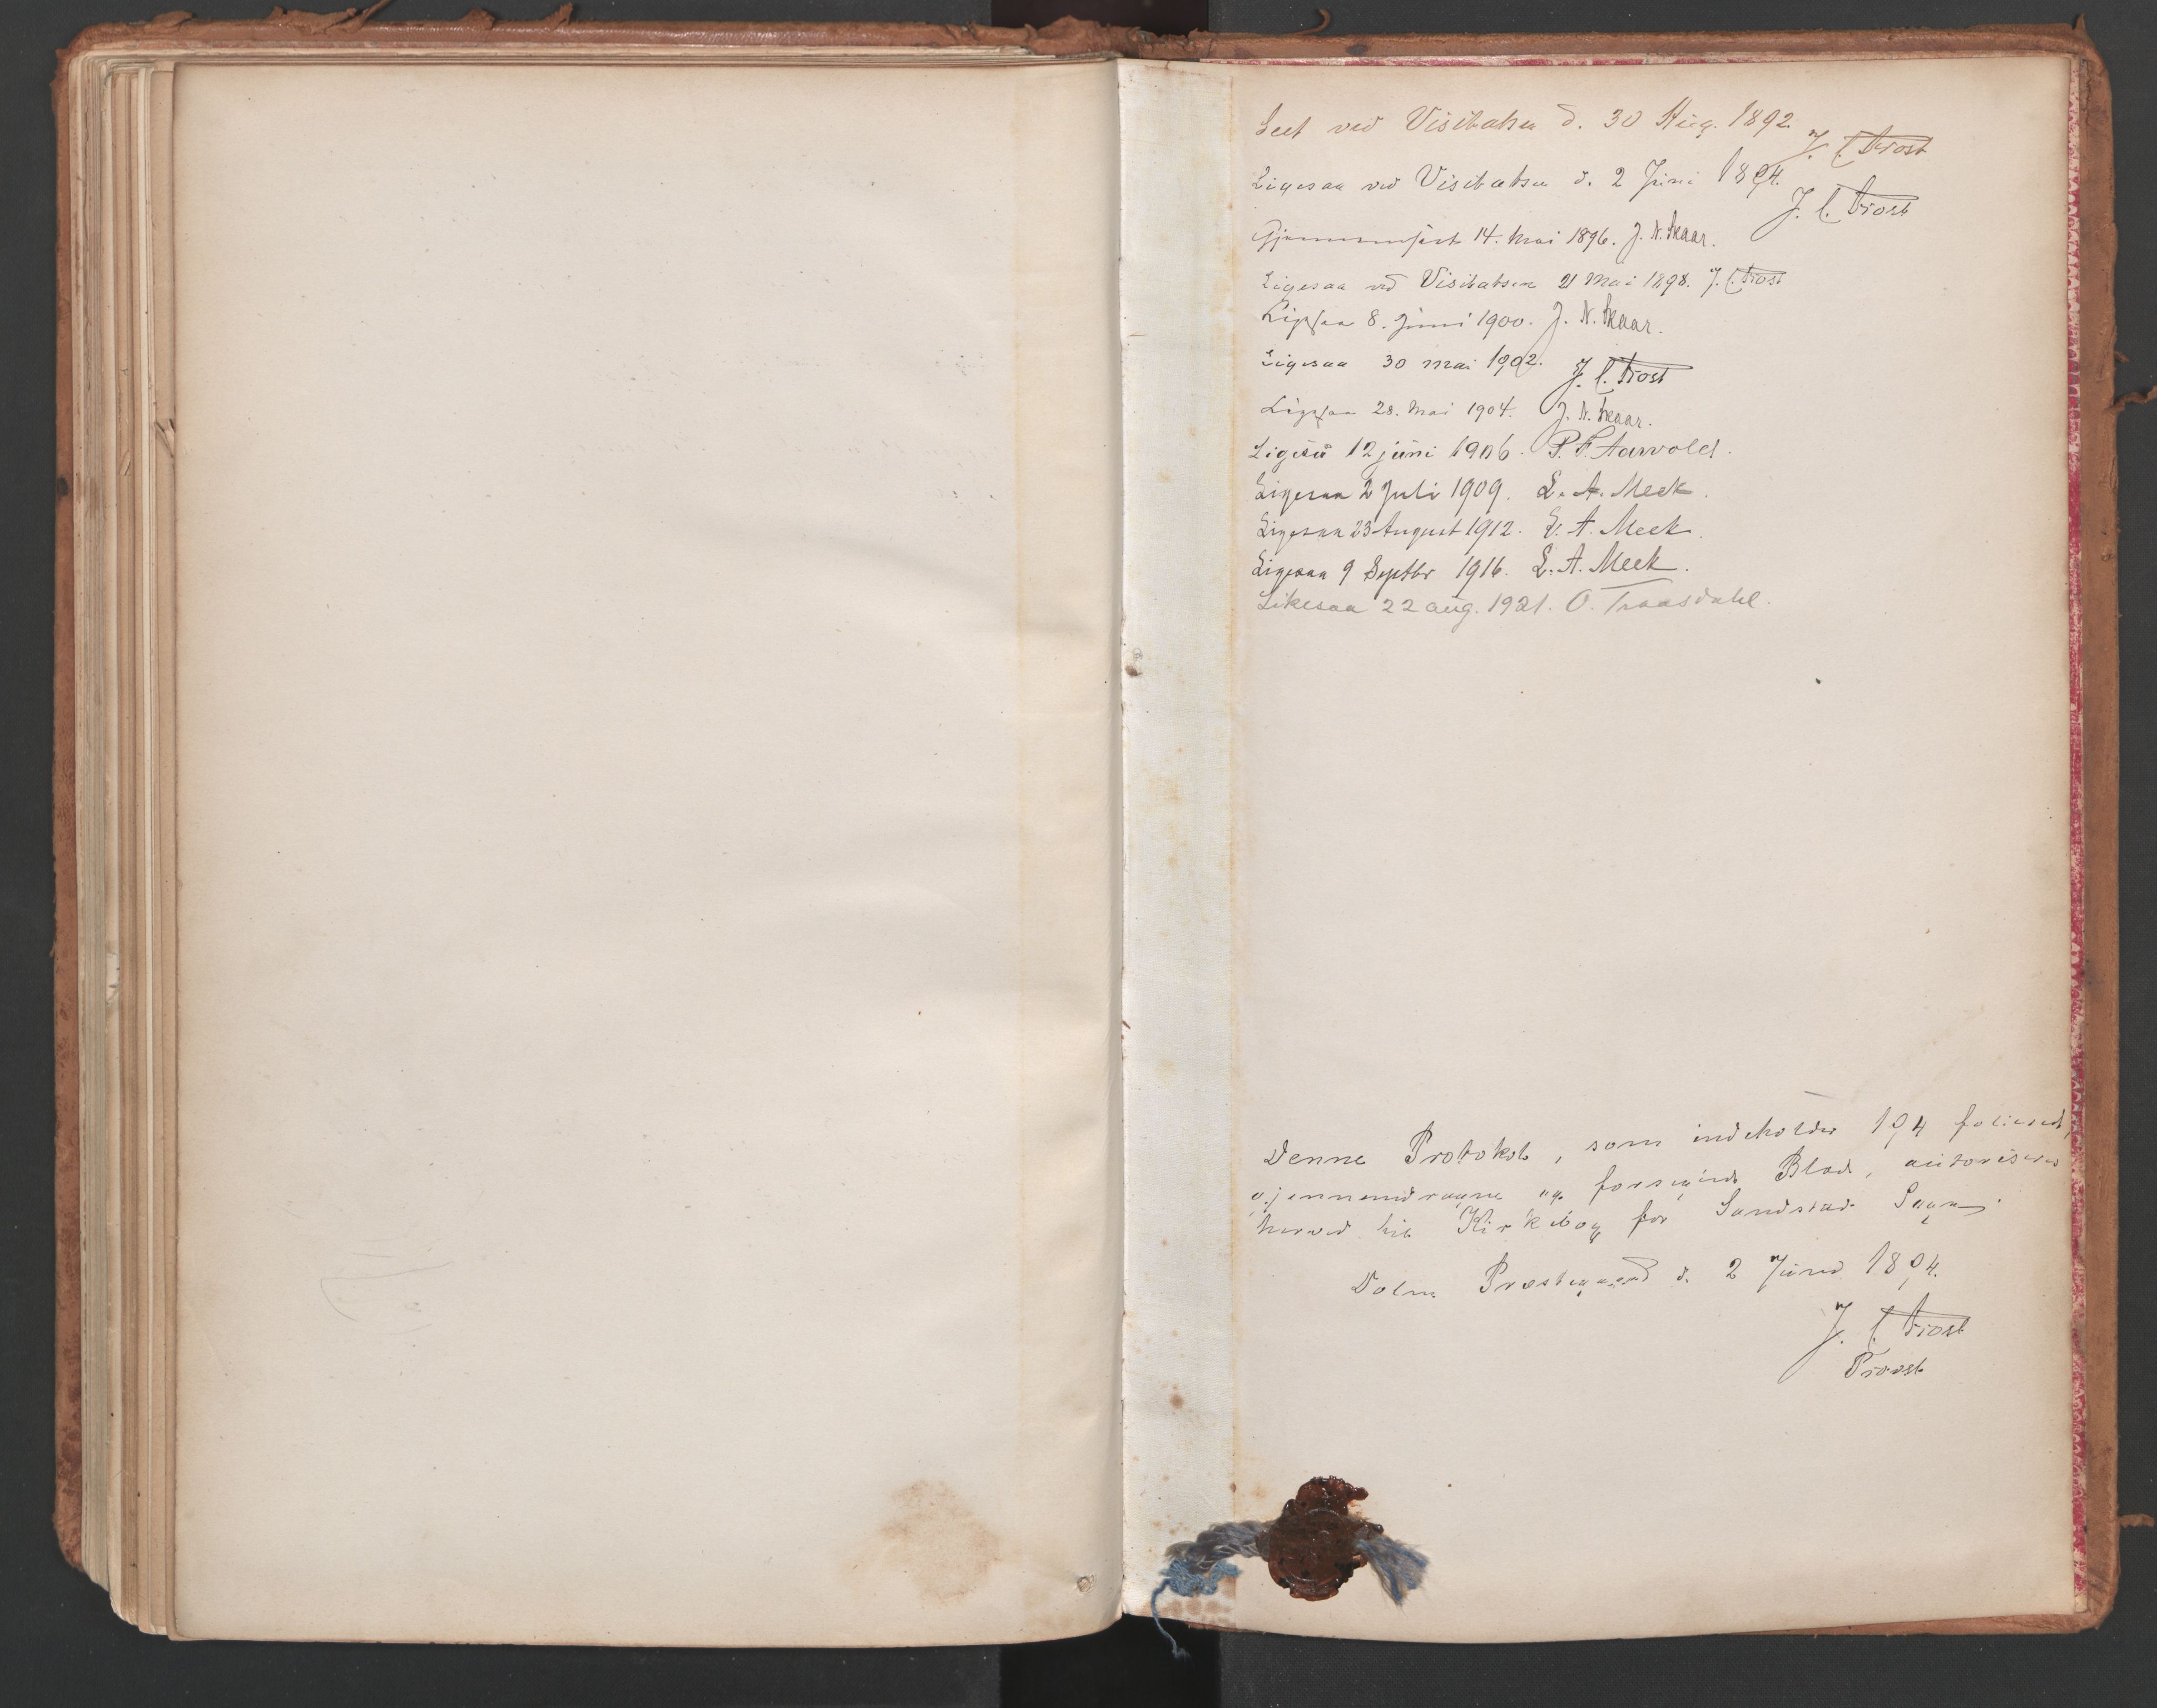 Seet ved Visitatsen d. 30 Aug. 1892. J. C. Trost
Ligesaa ved Visitatsen d. 2 Juni 1894. J. C. Trost
Gjennemseet 14. Mai 1896. J. N. Skaar.
Ligesaa ved Visitatsen 21 Mai 1898. J. C. Trost
Ligesaa 8. Juni 1900. J. N. Skaar.
Ligesaa 30 Mai 1902. J. C. Trost
Ligesaa 28. Mai 1904. J. N. Skaar.
Ligesaa 12 juni 1906. P. F. Aarvold.
Ligesaa 2 Juli 1909. L. A. Meek.
Ligesaa 23 August 1912. L. A. Meek.
Ligesaa 9 Septbr 1916. L. A. Meek.
Likesaa 22 aug. 1921. O. Traasdahl.
Denne Protokol, som indeholder 194 folierede,
gjennemdragne og forseglede Blade, autoriseres
herved til Kirkebog for Sandstad Sogn.
Dolm Præstegaard d. 2 Juni 1894.
J. C. Trost
Provst